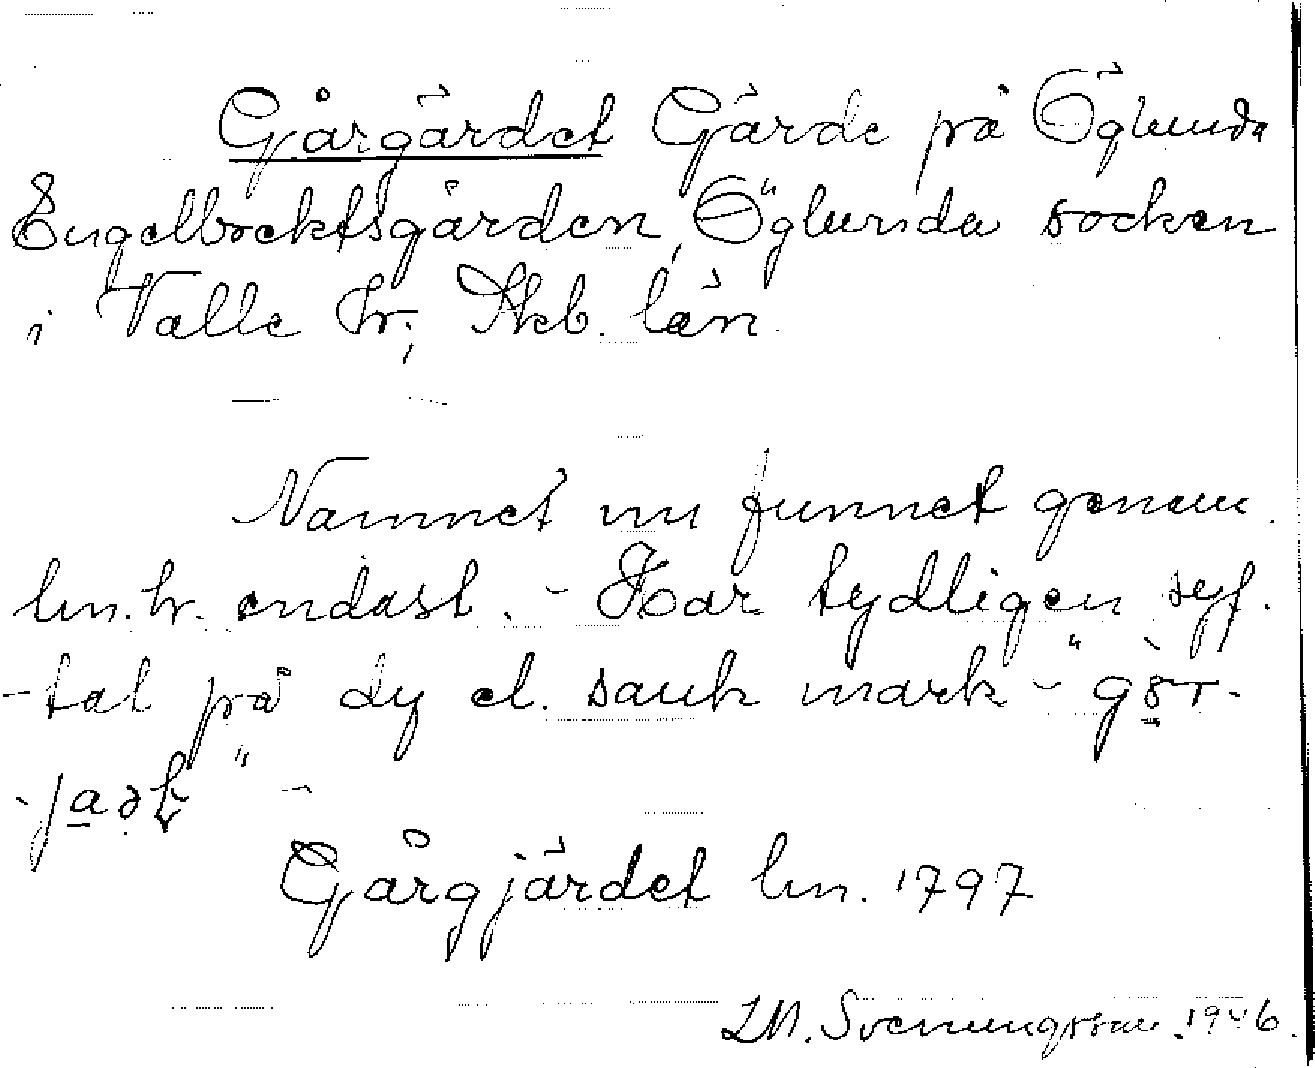 Gårgärdet Gärde på Öglunda
Engelbrektsgården, Öglunda socken
i Valle hr; Skb. län.
Namnet nu funnet genom
lm.hr. endast. - Har tydligen syf-
-tat på dy el. sank mark - "gör-
-jaək" -
Gårgjärdet lm. 1797
LM. Svenungsson. 1946.